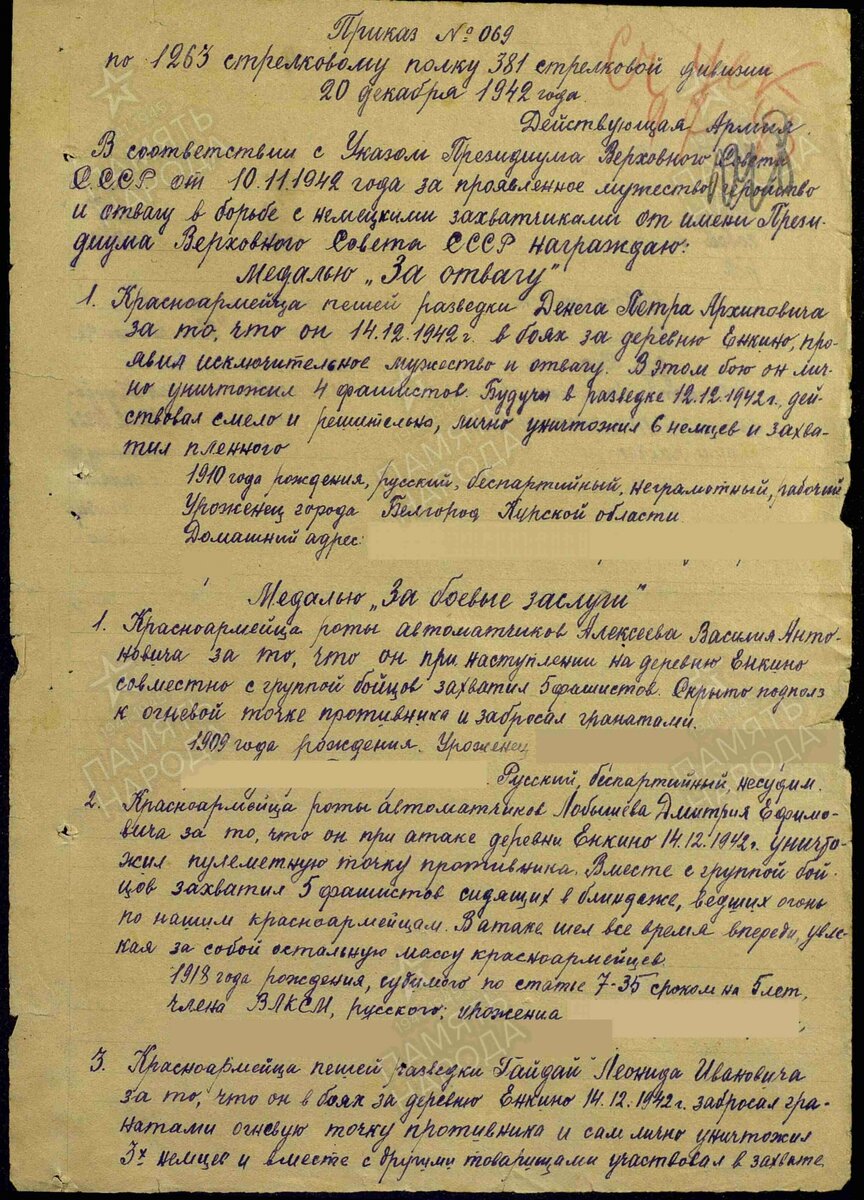 Приказ № 069
по 1263 стрелковому полку 381 стрелковой дивизии
20 декабря 1942 года.
Действующая Армия.
В соответствии с Указом Президиума Верховного Совета
СССР от 10.11.1942 года за проявленное мужество, геройство
и отвагу в борьбе с немецкими захватчиками от имени Прези-
диума Верховного Совета СССР награждаю:
Медалью „За отвагу"
1. Красноармейца пешей разведки Денега Петра Архиповича
за то, что он 14.12.1942 г. в боях за деревню Енкино, про-
явил исключительное мужество и отвагу. В этом бою он лич-
но уничтожил 4 фашистов. Будучи в разведке 12.12.1942 г., дей-
ствовал смело и решительно, лично уничтожил 6 немцев и захва-
тил пленного
1910 года рождения, русский, беспартийный, неграмотный, рабочий
Уроженец города Белгород Курской области.
Домашний адрес:
Медалью „За боевые заслуги"
1. Красноармейца роты автоматчиков Алексеева Василия Анто-
новича за то, что он при наступлении на деревню Енкино
совместно с группой бойцов захватил 5 фашистов. Скрыто подполз
к огневой точке противника и забросал гранатами.
1909 года рождения. Уроженец
Русский, беспартийный, несудим.
2. Красноармейца роты автоматчиков Лобышева Дмитрия Ефимо-
вича за то, что он при атаке деревни Енкино 14.12.1942 г. уничто-
жил пулеметную точку противника. Вместе с группой бой-
цов захватил 5 фашистов сидящих в блиндаже, ведших огонь
по нашим красноармейцам. В атаке шел все время впереди, увле-
кая за собой остальную массу красноармейцев.
1918 года рождения, судимого по статье 7-35 сроком на 5 лет,
члена ВЛКСМ, русского, уроженца
3. Красноармейца пешей разведки Гайдай Леонида Ивановича
за то, что он в боях за деревню Енкино 14.12.1942 г. забросал гра-
натами огневую точку противника и сам лично уничтожил
3х немцев и вместе с другими товарищами участвовал в захвате
ПАМЯТЬ НАРОДА